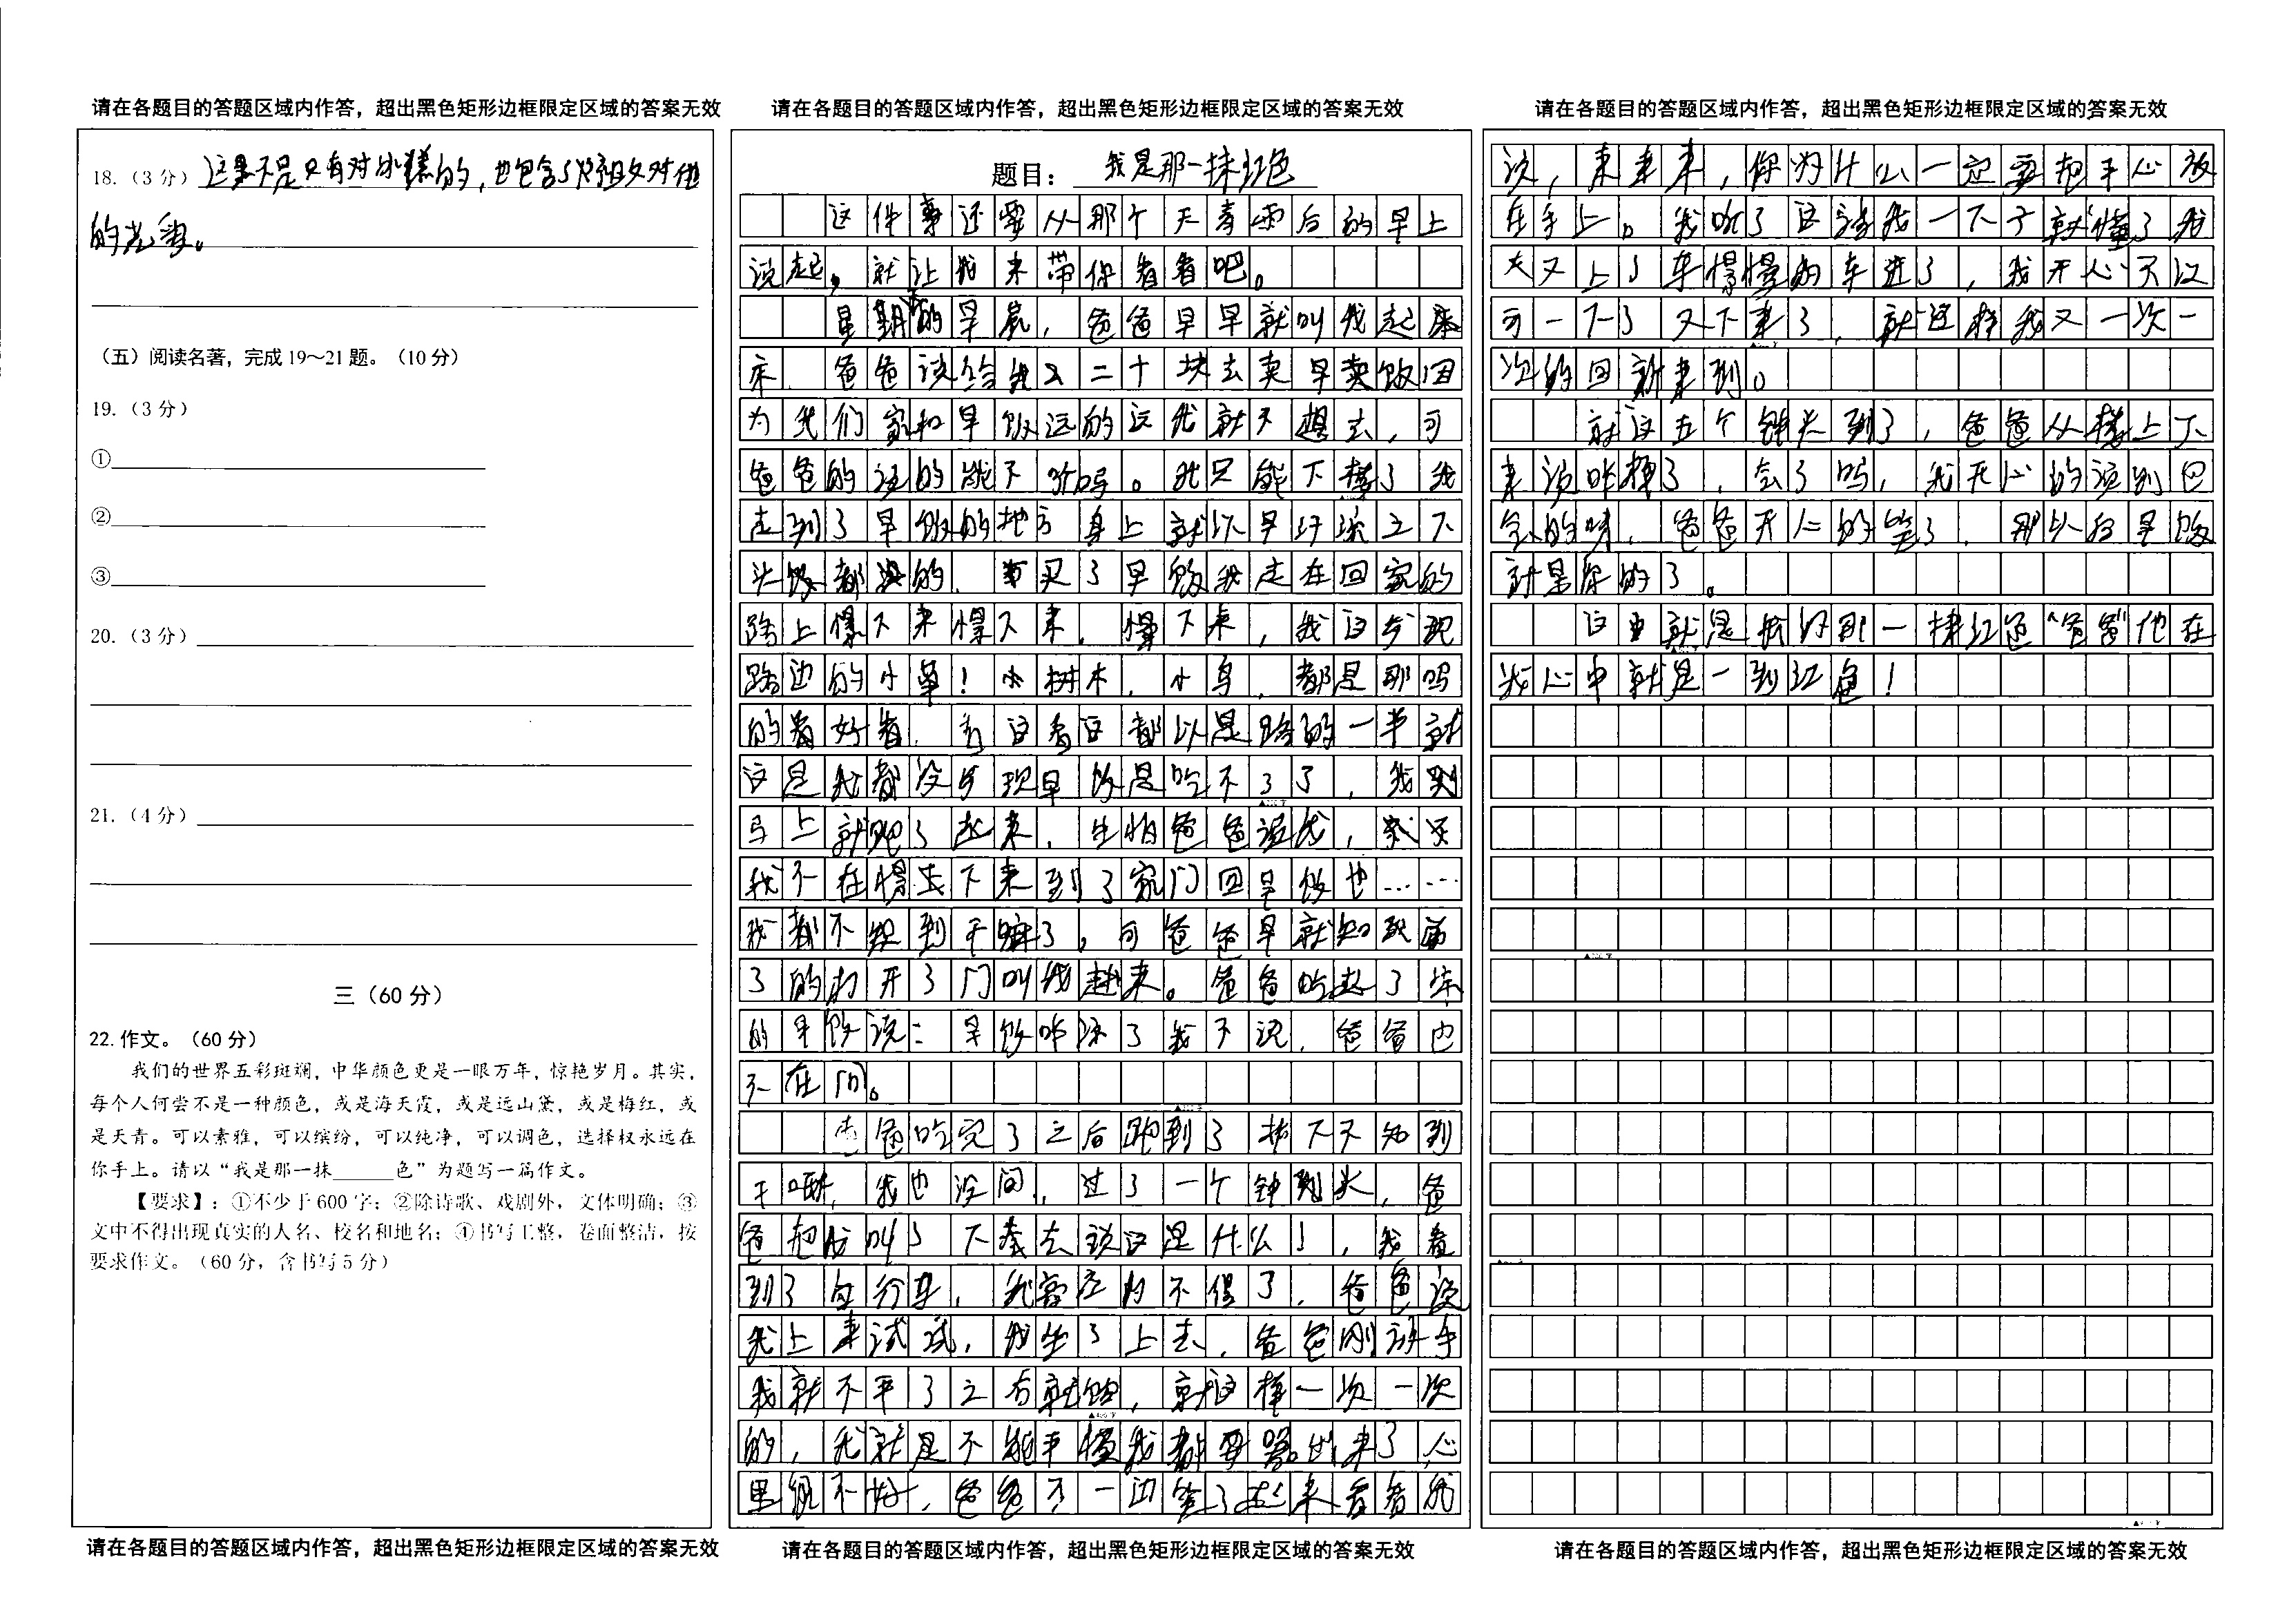 请在各题目的答题区域内作答，超出黑色矩形边框限定区域的答案无效
18.（3分）这里不是只有对冰糕的，也包含了对祖父对他
的
（五）阅读名著，完成19～21题。（10分）
19.（3分）
①
②
③
20.（3分）
21.（4分）
三（60分）
22.作文。（60分）
我们的世界五彩斑斓，中华颜色更是一眼万年，惊艳岁月。其实，
每个人何尝不是一种颜色，或是海天霞，或是远山黛，或是梅红，或
是天青。可以素雅，可以缤纷，可以纯净，可以调色，选择权永远在
你手上。请以“我是那一抹______色”为题写一篇作文。
【要求】：①不少于600字；②除诗歌、戏剧外，文体明确；③
文中不得出现真实的人名、校名和地名；④书写工整，卷面整洁，按
要求作文。（60分，含书写5分）
请在各题目的答题区域内作答，超出黑色矩形边框限定区域的答案无效
请在各题目的答题区域内作答，超出黑色矩形边框限定区域的答案无效
题目：我是那一抹红色
这件事还要从那个天青雨后的早上
说起，就让我来带你看看吧。
星期的早晨，爸爸早早就叫我起来
床，爸爸说给我二十块去卖早卖饭因
为我们家和早饭远的远我就不想去，可
爸爸的话的能不听吗。我只能下楼了我
走到了早饭的地方身上就以早
头发都湿的，买了早饭我走在回家的
路上慢下来慢下来，慢下来，我这步现
路边的小草！小树木，小鸟，都是那吗
的看好看，看这看这都以是路的一半就
这是我都没步现早饭是吃不了了，我
马上就跑了起来，生怕爸爸说我，
我不在慢去下来到了家门回早饭也……
我都不知到干嘛了，可爸爸早就知
了的打开了门叫我进来。爸爸吃起了
的早饭说：早饭咋凉了我不说，爸爸也
不在问。
爸爸吃完了之后跑到了楼下不知到
干嘛，我也没问，过了一个钟头，爸
爸把我叫了下去说这是什么！，我看
到了自行车，我高兴的不得了，爸爸说
我上来试试，我坐了上去，爸爸刚放手
我就不平了之右就，就这样一次一次
的，我就是不能平慢我都要哭出来了心
里很不好，爸爸不一边笑了起来看着我
请在各题目的答题区域内作答，超出黑色矩形边框限定区域的答案无效
请在各题目的答题区域内作答，超出黑色矩形边框限定区域的答案无效
说，来来来，你为什么一定要把手心放
在手上。我听了这话我一下子就懂了我
又上了车慢慢的车进了，我开心不以
可一下了又下来了，就这样我又一次一
次的回新来到。
就这五个钟头到了，爸爸从楼上下
来说咋样了，会了吗，我开心的说到已
会的呀，爸爸开心的笑了，那以后早饭
就是你的了。
这也就是我的那一抹红色“爸爸”他在
我心中就是一到红色！
请在各题目的答题区域内作答，超出黑色矩形边框限定区域的答案无效